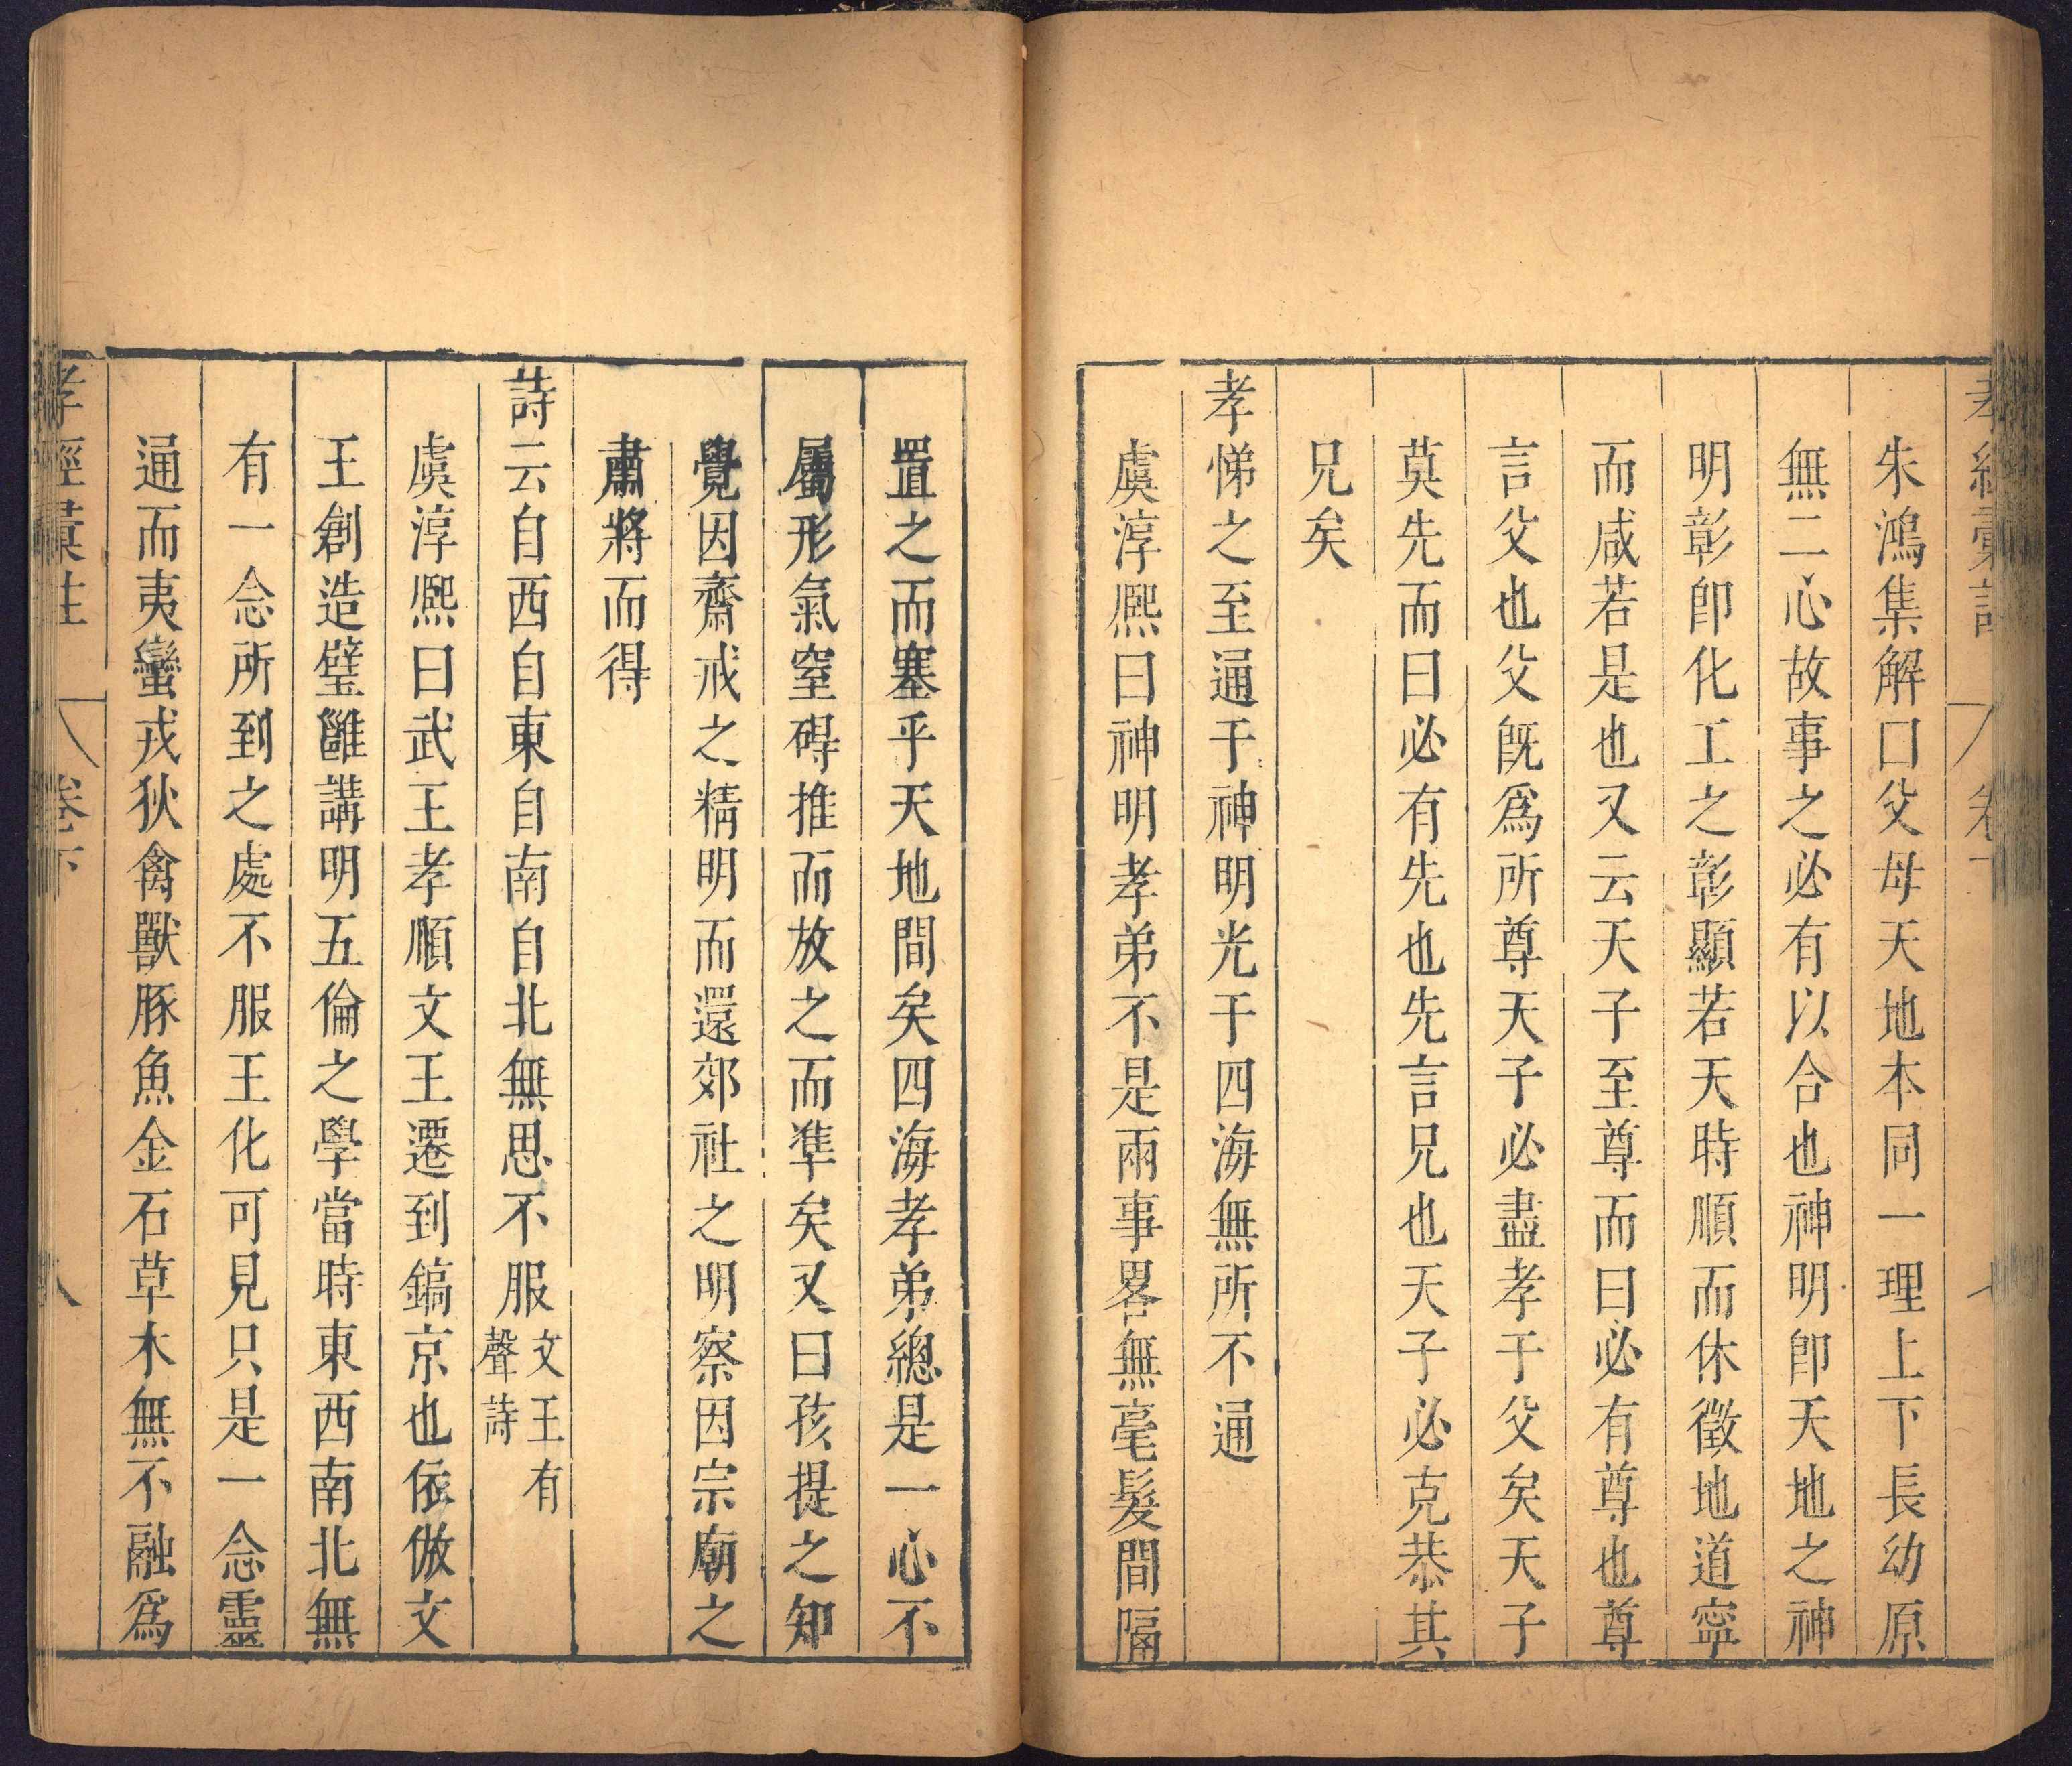 朱鴻集解口父母天地本同一理上下長幼原
無二心故事之必有以合也神明卽天地之神
明彰卽化工之彰顯若天時順而休徵地道寧
而咸若是也又云天子至尊而曰必有尊也尊
言父也父既爲所尊天子必盡孝于父矣天子
莫先而曰必有先也先言兄也天子必克恭其
兄矣
孝悌之至通于神明光于四海無所不通
虞淳熈曰神明孝弟不是兩事畧無毫髮間隔
置之而塞乎天地間矣四海孝弟總是一心不
屬形氣窒碍推而放之而準矣又曰孩提之知
覺因齋戒之精明而還郊社之明察因宗廟之
肅將而得
詩云自西自東自南自北無思不服文王有
聲詩
虞淳熈曰武王孝順文王遷到鎬京也依倣文
王創造璧雝講明五倫之學當時東西南北無
有一念所到之處不服王化可見只是一念靈
通而夷蠻戎狄禽獸豚魚金石草木無不融爲
孝經彙註 卷下 八